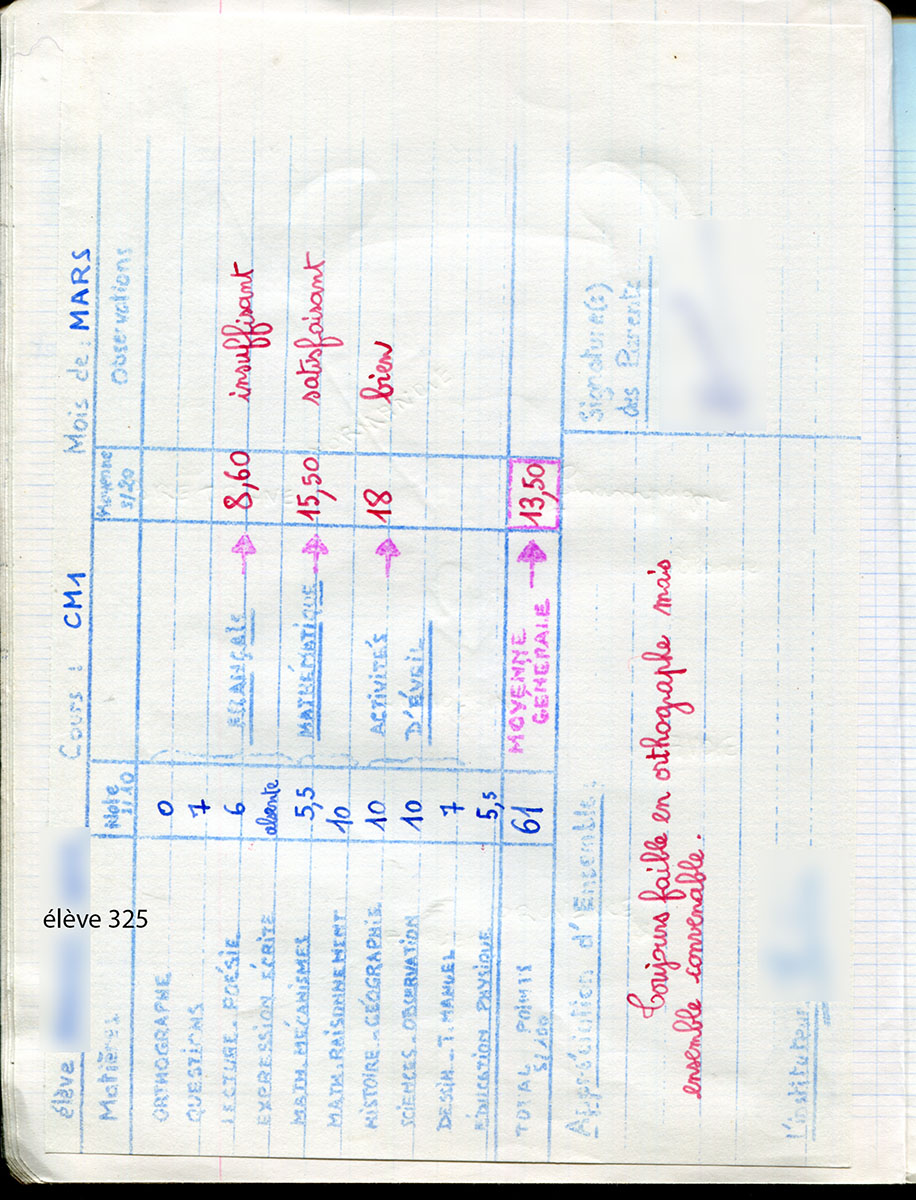 élève
élève 325
Cours : CM1
Mois de : MARS
Matières
Note s/10
Moyenne s/20
Observations
ORTHOGRAPHE 0
QUESTIONS 7
LECTURE - POÉSIE 6 FRANÇAIS 8,60 insuffisant
EXPRESSION ÉCRITE absente
MATH. MÉCANISMES 5,5 MATHÉMATIQUE 15,50 satisfaisant
MATH. RAISONNEMENT 10
HISTOIRE - GÉOGRAPHIE 10 ACTIVITÉS 18 bien
SCIENCES - OBSERVATION 10 D'ÉVEIL
DESSIN - T. MANUEL 7
ÉDUCATION PHYSIQUE 5,5
TOTAL POINTS 61 MOYENNE GENERALE 13,50
s/100
Appréciation d'Ensemble :
Signature(s)
des Parents
Toujours faible en orthographe mais
ensemble convenable.
l'instituteur